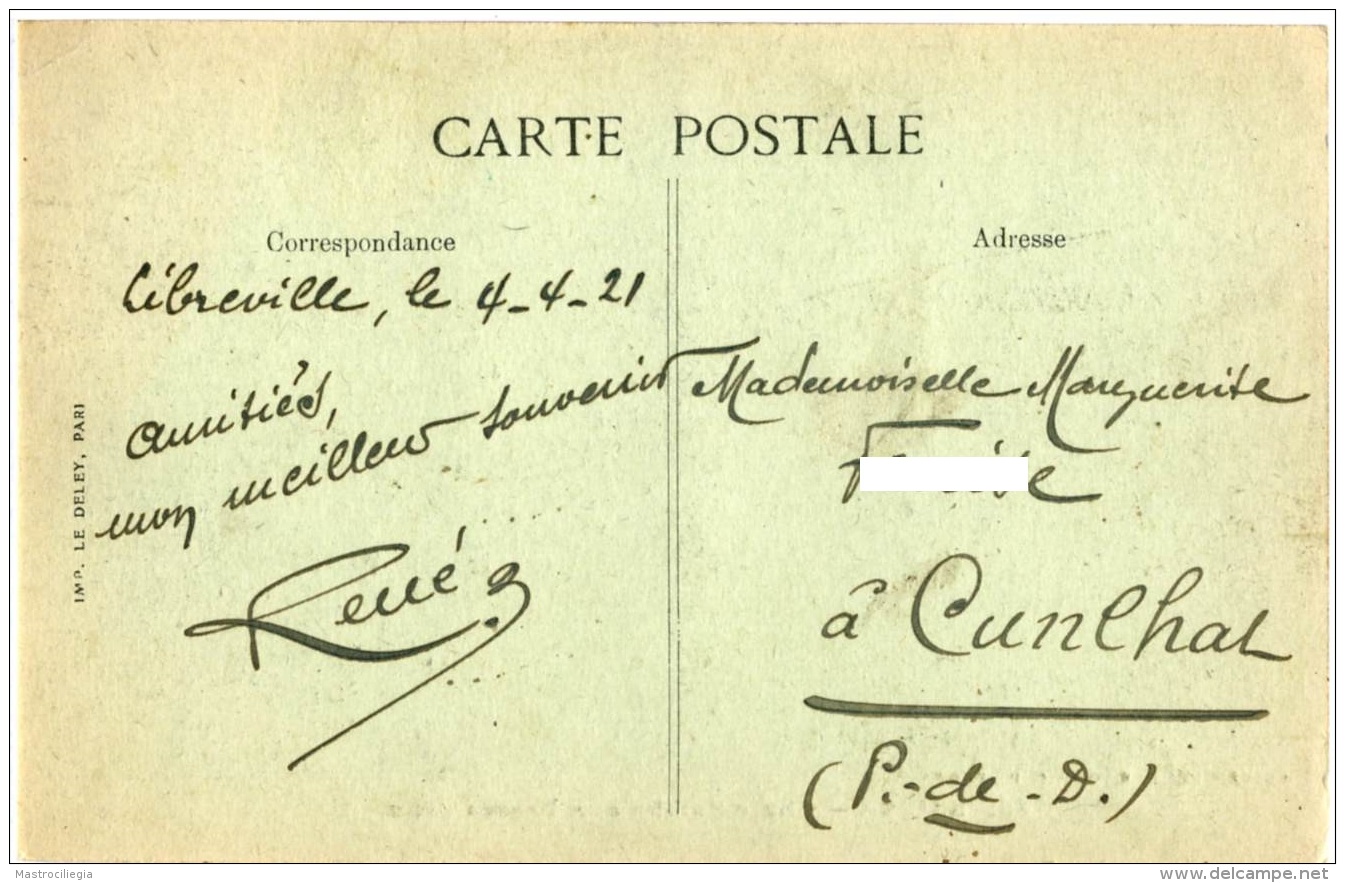 CARTE POSTALE
Correspondance
Libreville, le 4-4-21
amitiés,
mon meilleur souvenir
René
IMP. LE DELEY, PARI
Adresse
Mademoiselle Marguerite
à Cunlhat
(P.-de-D.)
Mastrociliegia
delcampe.net